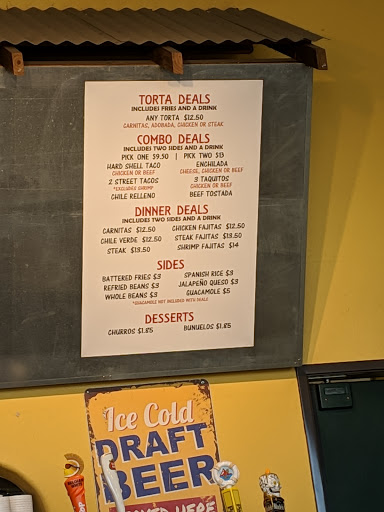 TORTA DEALS
INCLUDES FRIES AND A DRINK
ANY TORTA $12.50
CARNITAS, ADOBADA, CHICKEN OR STEAK
COMBO DEALS
INCLUDES TWO SIDES AND A DRINK
PICK ONE $9.50 | PICK TWO $13
HARD SHELL TACO
CHICKEN OR BEEF
2 STREET TACOS
*EXCLUDES SHRIMP
CHILE RELLENO
ENCHILADA
CHEESE, CHICKEN OR BEEF
3 TAQUITOS
CHICKEN OR BEEF
BEEF TOSTADA
DINNER DEALS
INCLUDES TWO SIDES AND A DRINK
CARNITAS $12.50
CHILE VERDE $12.50
STEAK $13.50
CHICKEN FAJITAS $12.50
STEAK FAJITAS $13.50
SHRIMP FAJITAS $14
SIDES
BATTERED FRIES $3
REFRIED BEANS $3
WHOLE BEANS $3
SPANISH RICE $3
JALAPEÑO QUESO $3
GUACAMOLE $5
*GUACAMOLE NOT INCLUDED WITH DEALS
DESSERTS
CHURROS $1.85
BUNUELOS $1.85
Ice Cold
DRAFT
BEER
HERE